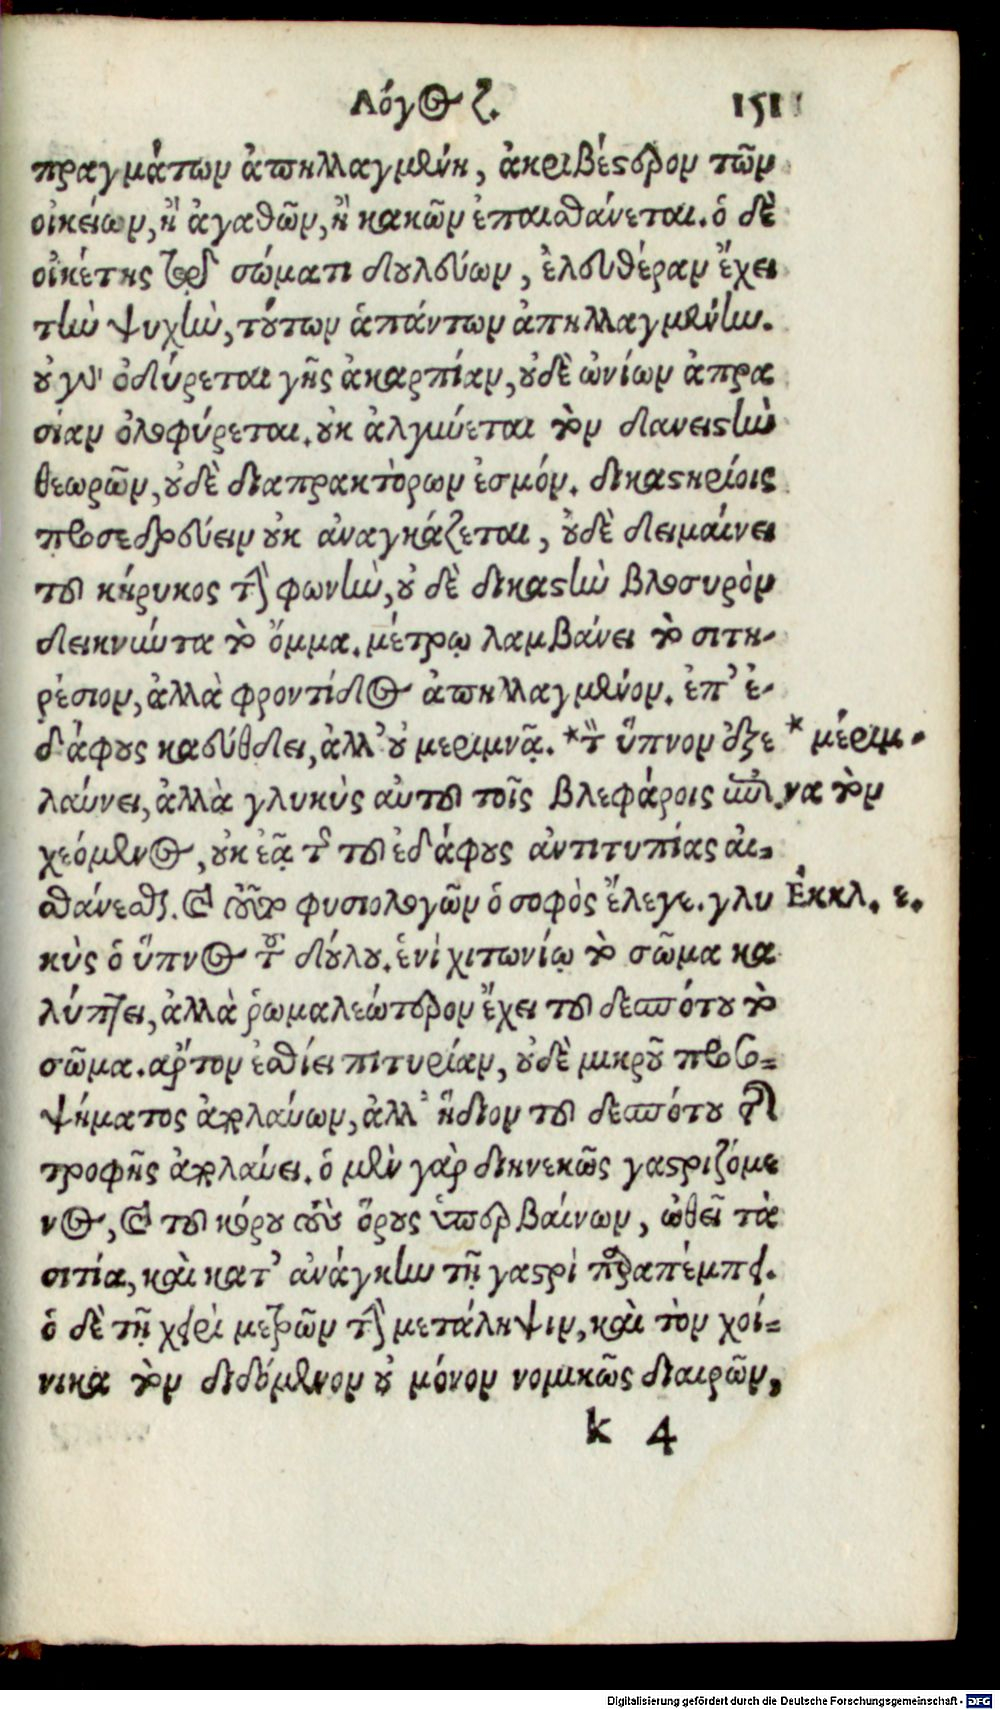 Λόγος ζ. 151
πραγμάτων ἀπηλλαγμένη, ἀκριβέστερον τῶν
οἰκείων, ἢ ἀγαθῶν, ἢ κακῶν ἐπαισθάνεται. ὁ δὲ
οἰκέτης τῷ σώματι δουλεύων, ἐλευθέραν ἔχει
τὴν ψυχὴν, τούτων ἁπάντων ἀπηλλαγμένην.
οὐ γὰρ ὀδύρεται γῆς ἀκαρπίαν, οὐδὲ ὠνίων ἀπρα
σίαν ὀλοφύρεται. οὐκ ἀλγύνεται τὸν δανειστὴν
θεωρῶν, οὐδὲ διαπρακτόρων ἐσμόν. δικαστηρίοις
προσεδρεύειν οὐκ ἀναγκάζεται, οὐδὲ δειμαίνει
τοῦ κήρυκος τὴν φωνὴν, οὐ δὲ δικαστὴν βλοσυρὸν
δεικνύντα τὸ ὄμμα. μέτρῳ λαμβάνει τὸ σιτη-
ρέσιον, ἀλλὰ φροντίδος ἀπηλλαγμένον. ἐπ' ἐ-
δάφους καθεύδει, ἀλλ' οὐ μεριμνᾷ. *τὸν ὕπνον ἐξε
* μέριμ-
λαύνει, ἀλλὰ γλυκὺς αὐτοῦ τοῖς βλεφάροις ἐπι
να τὸν
χεόμενος, οὐκ ἐᾷ τῆς τοῦ ἐδάφους ἀντιτυπίας αἰ-
σθάνεσθαι. καὶ τοῦτο φυσιολογῶν ὁ σοφὸς ἔλεγε. γλυ
Ἐκκλ. ε.
κὺς ὁ ὕπνος τοῦ δούλου. ἑνὶ χιτωνίῳ τὸ σῶμα κα
λύπτει, ἀλλὰ ῥωμαλεώτερον ἔχει τοῦ δεσπότου τὸ
σῶμα. ἄρτον ἐσθίει πιτυρίαν, οὐδὲ μικροῦ προσο-
ψήματος ἀπολαύων, ἀλλ' ἥδιον τοῦ δεσπότου τῆς
τροφῆς ἀπολαύει. ὁ μὲν γὰρ διηνεκῶς γαστριζόμε
νος, καὶ τοῦ κόρου τοὺς ὅρους ὑπερβαίνων, ὠθεῖ τὰ
σιτία, καὶ κατ' ἀνάγκην τῇ γαστρὶ παραπέμπει.
ὁ δὲ τῇ χρείᾳ μετρῶν τὴν μετάληψιν, καὶ τὸν χοί-
νικα τὸν διδόμενον οὐ μόνον νομικῶς διαιρῶν,
k 4
Digitalisierung gefördert durch die Deutsche Forschungsgemeinschaft - DFG